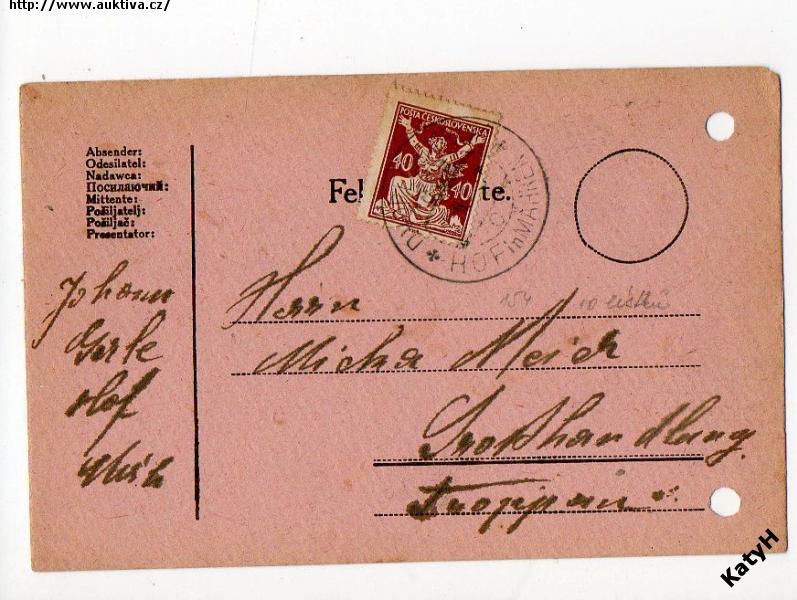 http://www.auktiva.cz/
POŠTA ČESKOSLOVENSKÁ
40 40
HOF in MÄHREN
Absender:
Odesílatel:
Nadawca:
Посилаючий:
Mittente:
Pošiljatelj:
Pošiljač:
Presentator:
Fel te.
Johann
Hof
Herrn
154 10 lístků
Micka Meier
Grosshandlung
Troppau
KatyH